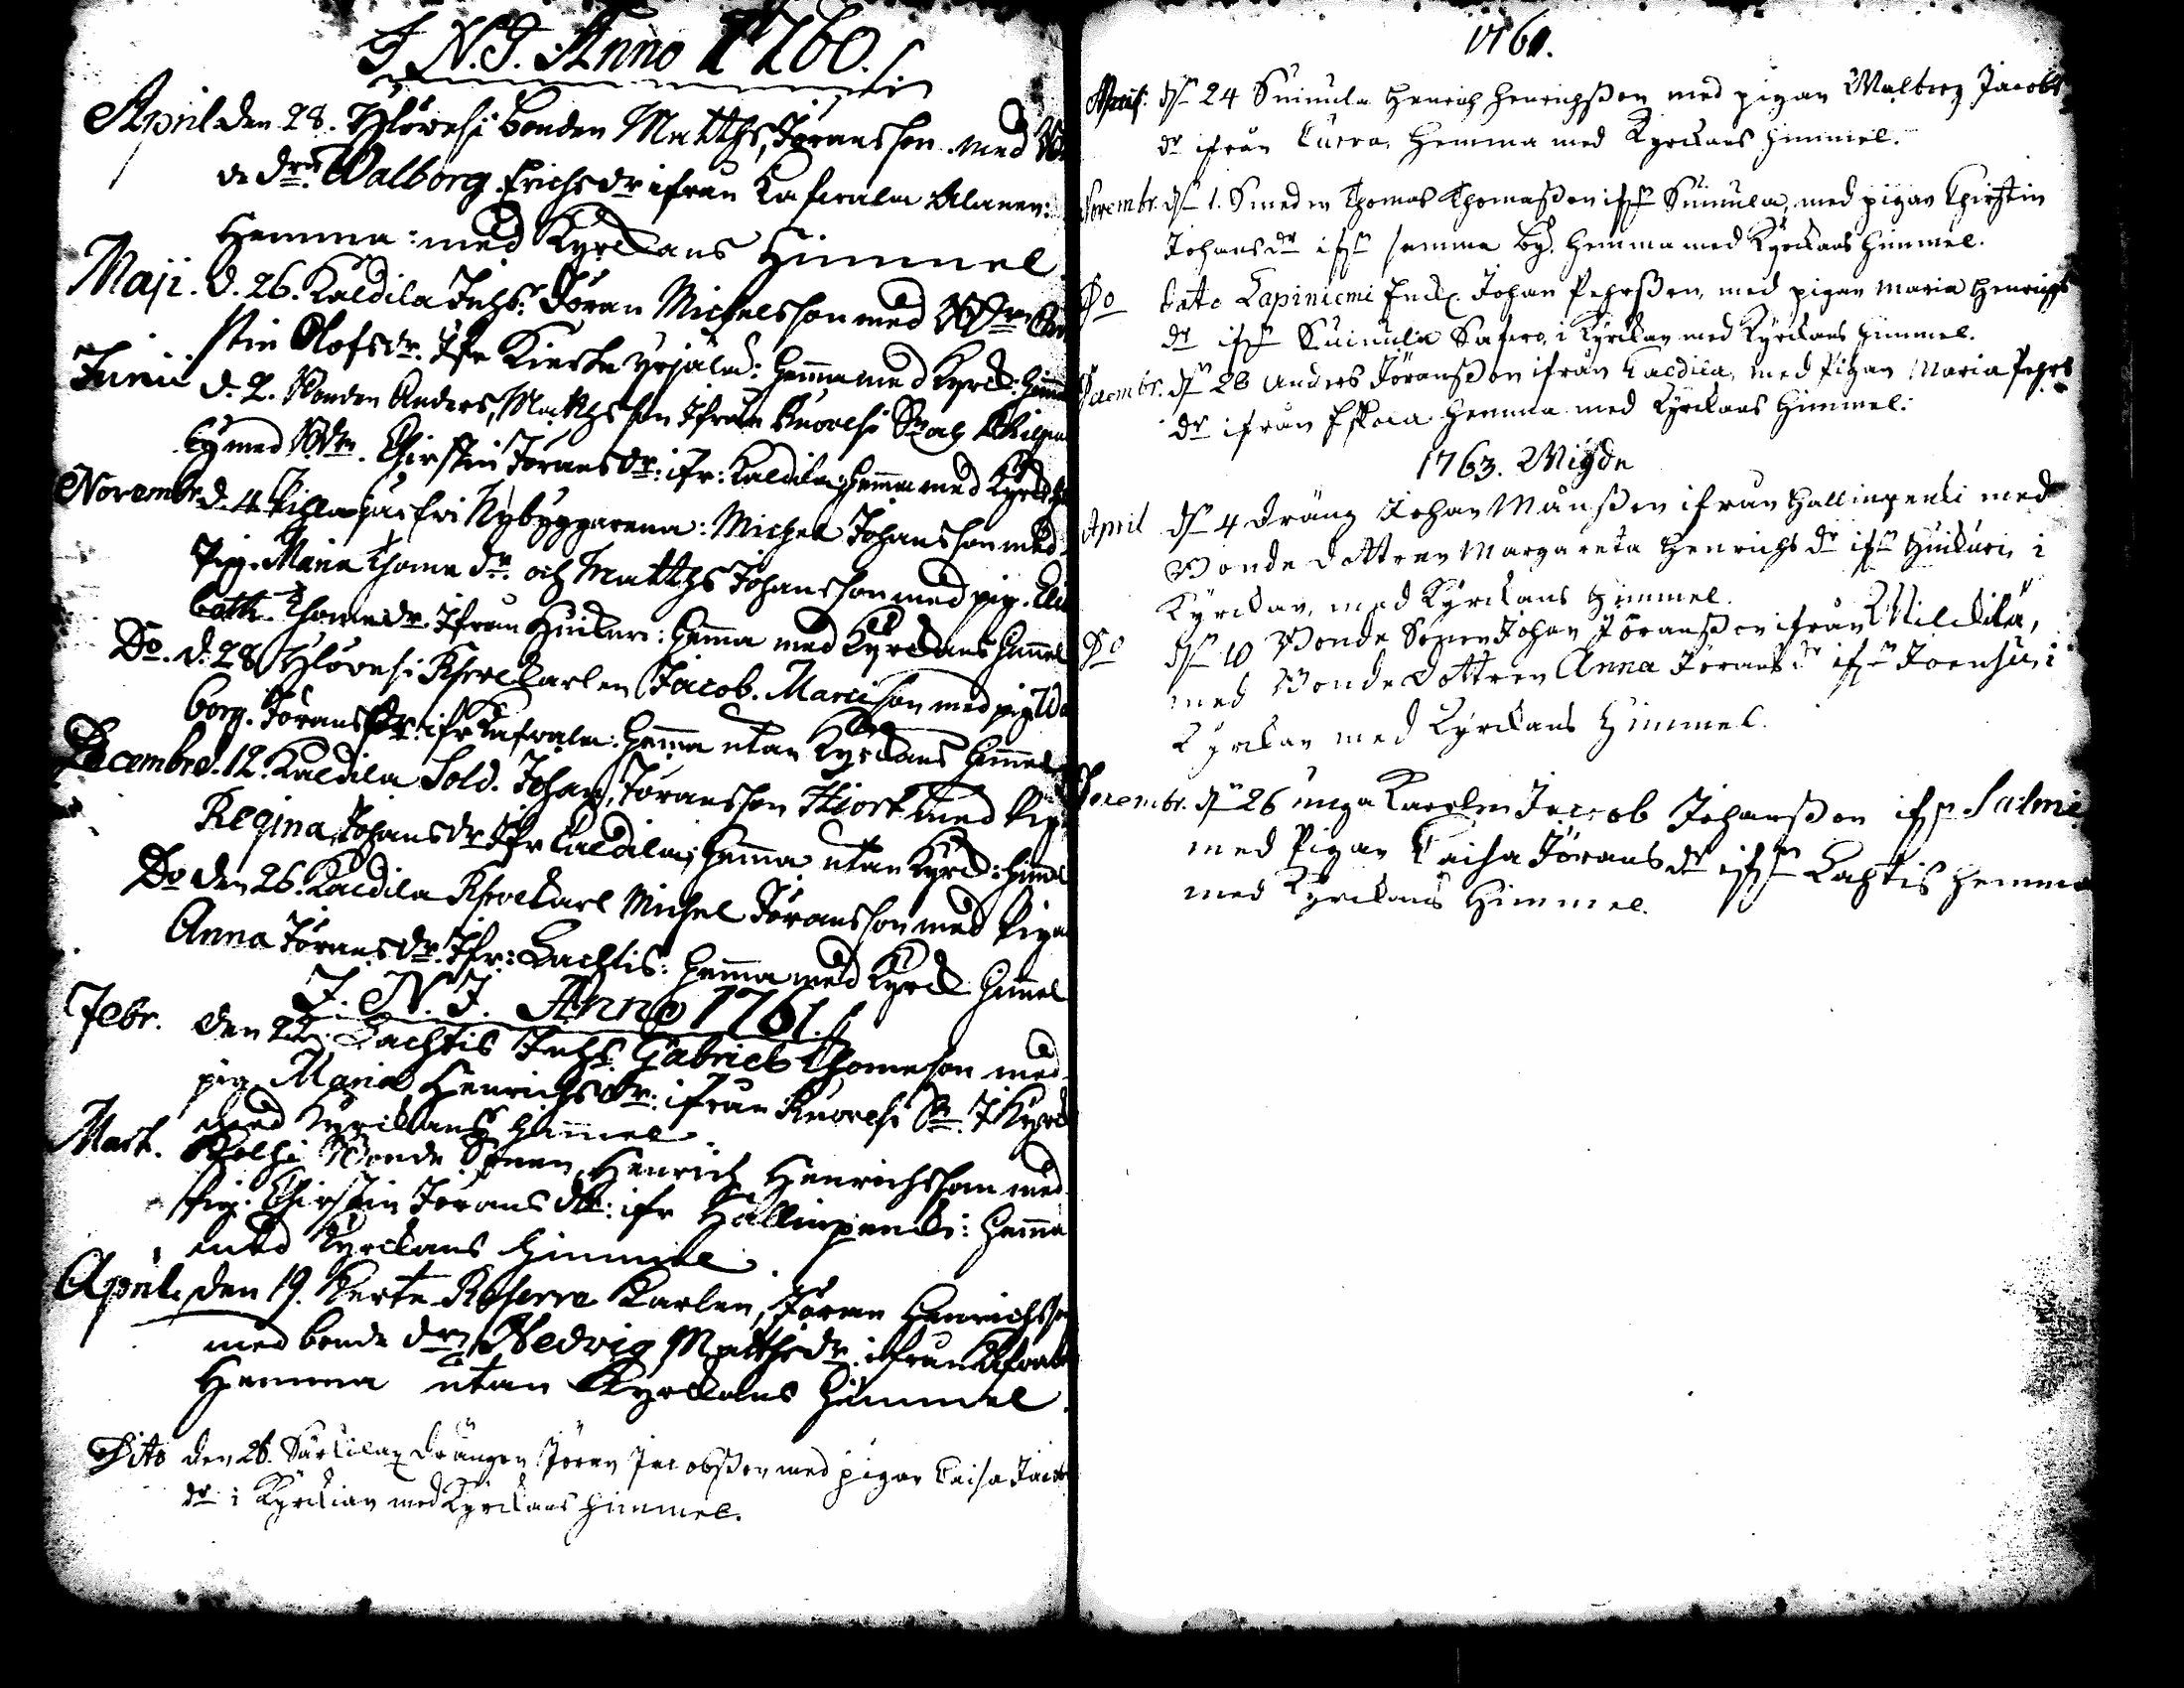 J N. J. Anno 1760.
April den 28. Ylöwesi bonden Matths Jöransson med
de drn Walborg Erichsdr ifrån Kafwala Alanen:
Hemma: med Kyrckans Himmel.
Maji. d. 26. Kaldila Inhs: Jöran Michelsson med
stin Olofsdr. Ifr Kierke Yrjälä: hemma med Kyrck: Himm
Junii d. 2. Bonden Anders Matthsson Ifrån Kuoresi
by med Chirstin Jöransdr: ifr: Kaldila, hemma med Kyrck
Novembr d. 4. Nybyggarena: Michel Johansson med
Pig. Maria Thomædr. och Matths Johansson med pig. Eli
beth Thomædr. Ifrån Huikuri: hemma med Kyrckans Himmel
Do. d. 28 Ylöwesi Reserwekarlen Jacob Marcisson med pig Wa
borg. Jöransdr. ifr Kafwala: hemma utan Kyrckans Himmel
Decembr d. 12. Kaldila Sold. Johan Jöransson Hiort med Pig
Regina Johansdr Ifr Kaldila; hemma utan Kyrck: Himmel
Do den 26. Kaldila Reserwekarl Michel Jöransson med Piga
Anna Jöransdr. Ifr: Lachtis: hemma med Kyrck Himmel
J. N. J. Anno 1761.
Febr. den Lachtis Inhs Gabriel Thomeson med
pig. Maria Henrichsdr: ifrån Kuoresi I Kyrck
med Kyrckans Himmel.
Mart. Bonde Sonen Henrich Henrichsson med
Pig: Chirstin Jöransdr: ifr Hallinpenki: hemma
med Kyrckans Himmel
April. den 19. Kerte Reserve Karlen, Jöran Henrichsson
med bonde drn Hedvig Matthsdr. ifrån Kafwala
Hemma utan Kyrckans Himmel.
Dito den 26. Särkilax drängen Jören Jacobsson med pigan Caisa Jacobs
dr i Kyrckian med Kyrckans himmel.
1761.
April: dn 24 Suinula Henrich Henrichsson med pigan Walborg Jacobs
dr ifrån Kuorra, hemma med Kyrckans himmel.
Novembr. dn 1. Smeden Thomas Thomasson ifrn Suinula, med pigan Chirstin
Johansdr ifrn samma by. hemma med Kyrckans himmel.
Do dato Lapiniemi Enck. Johan Pehrsson, med pigan Maria Henrichs
dr ifrn Suinula i Kyrckan med Kyrckans himmel.
Decembr. dn 26 Anders Jöransson ifrån Kaldila, med Pigan Maria Pehrs
dr ifrån Eskola hemma med Kyrckans Himmel.
1763. Wigde
April dn 4 dräng Johan Månsson ifrån Hallinpenki med
Bonde dottren Margareta Henrichs dr ifrn Huikuri, i
Kyrckan, med Kyrckans himmel.
Do dn 10 Bonde Sonen Johan Jöransson ifrån
med Bonde dottren Anna Jörans dr ifrn Joensu, i
Kyrckan med Kyrckans Himmel.
Novembr. dn 26 unga Karlen Jacob Johansson ifrn Salmi
med Pigan Caisa Jörans dr ifrn Lahtis hemma
med Kyrckans Himmel.